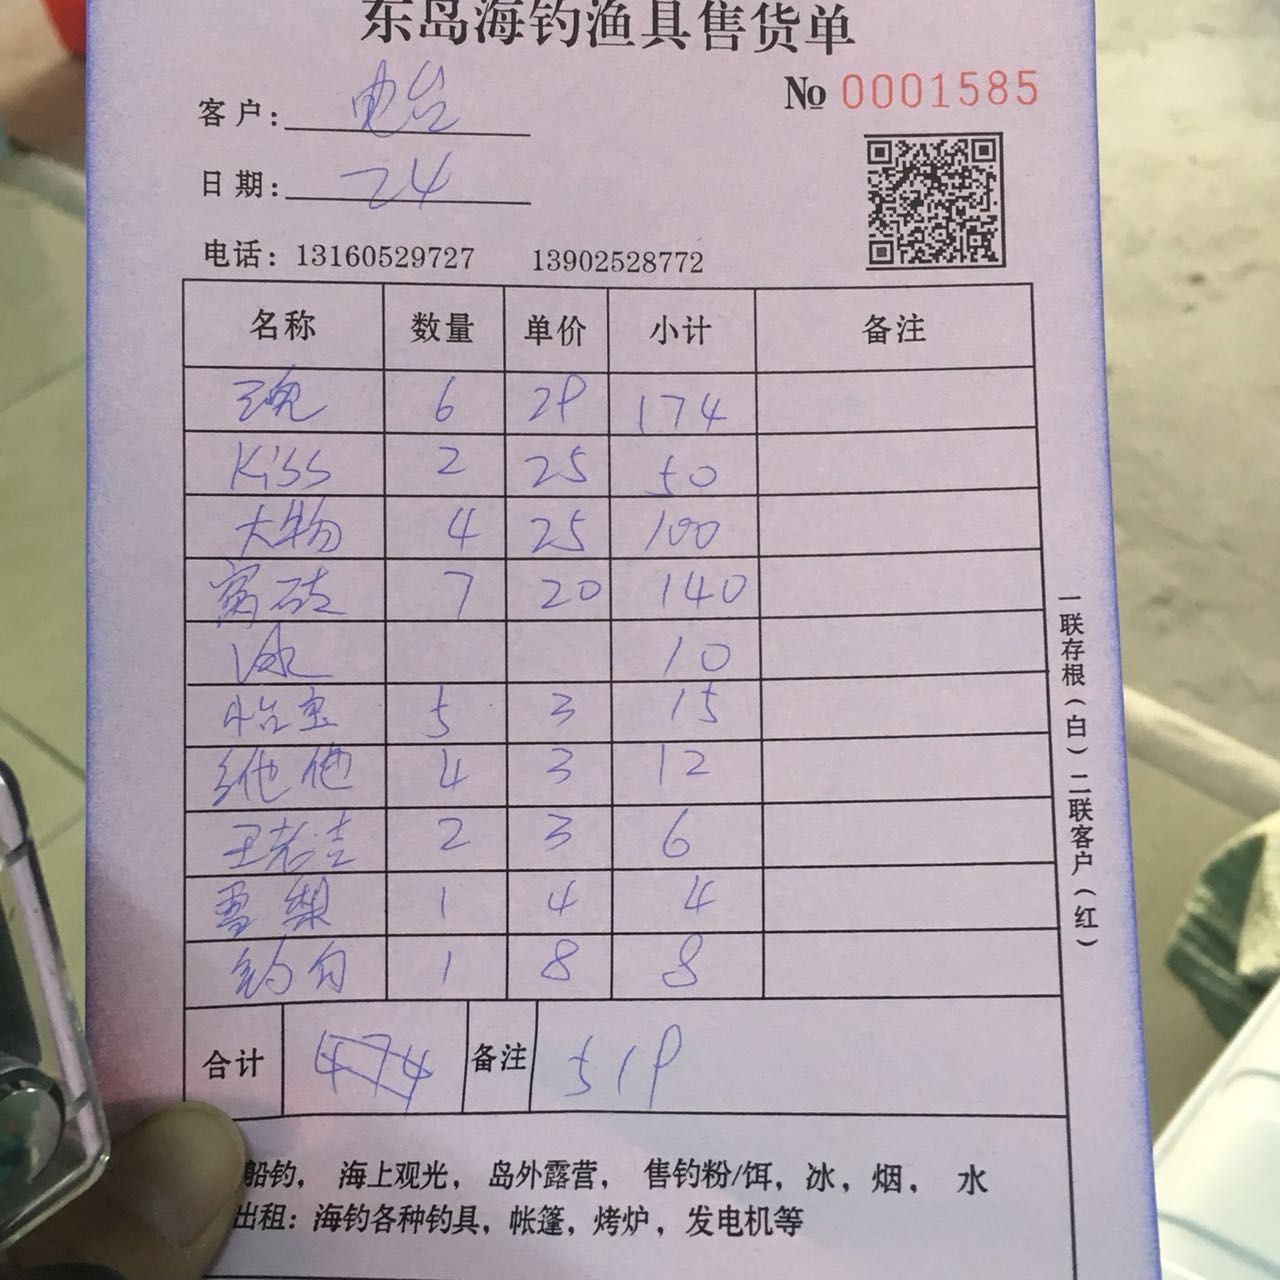 东岛海钓渔具售货单
№ 0001585
客户: 电台
日期: 24
电话: 13160529727 13902528772
名称 数量 单价 小计 备注
魂 6 29 174
Kiss 2 25 50
大物 4 25 100
窝砖 7 20 140
冰 10
怡宝 5 3 15
维他 4 3 12
王老吉 2 3 6
雪梨 1 4 4
钓勾 1 8 8
合计 474 备注 519
船钓, 海上观光, 岛外露营, 售钓粉/饵, 冰, 烟, 水
出租: 海钓各种钓具, 帐篷, 烤炉, 发电机等
一联存根(白) 二联客户(红)